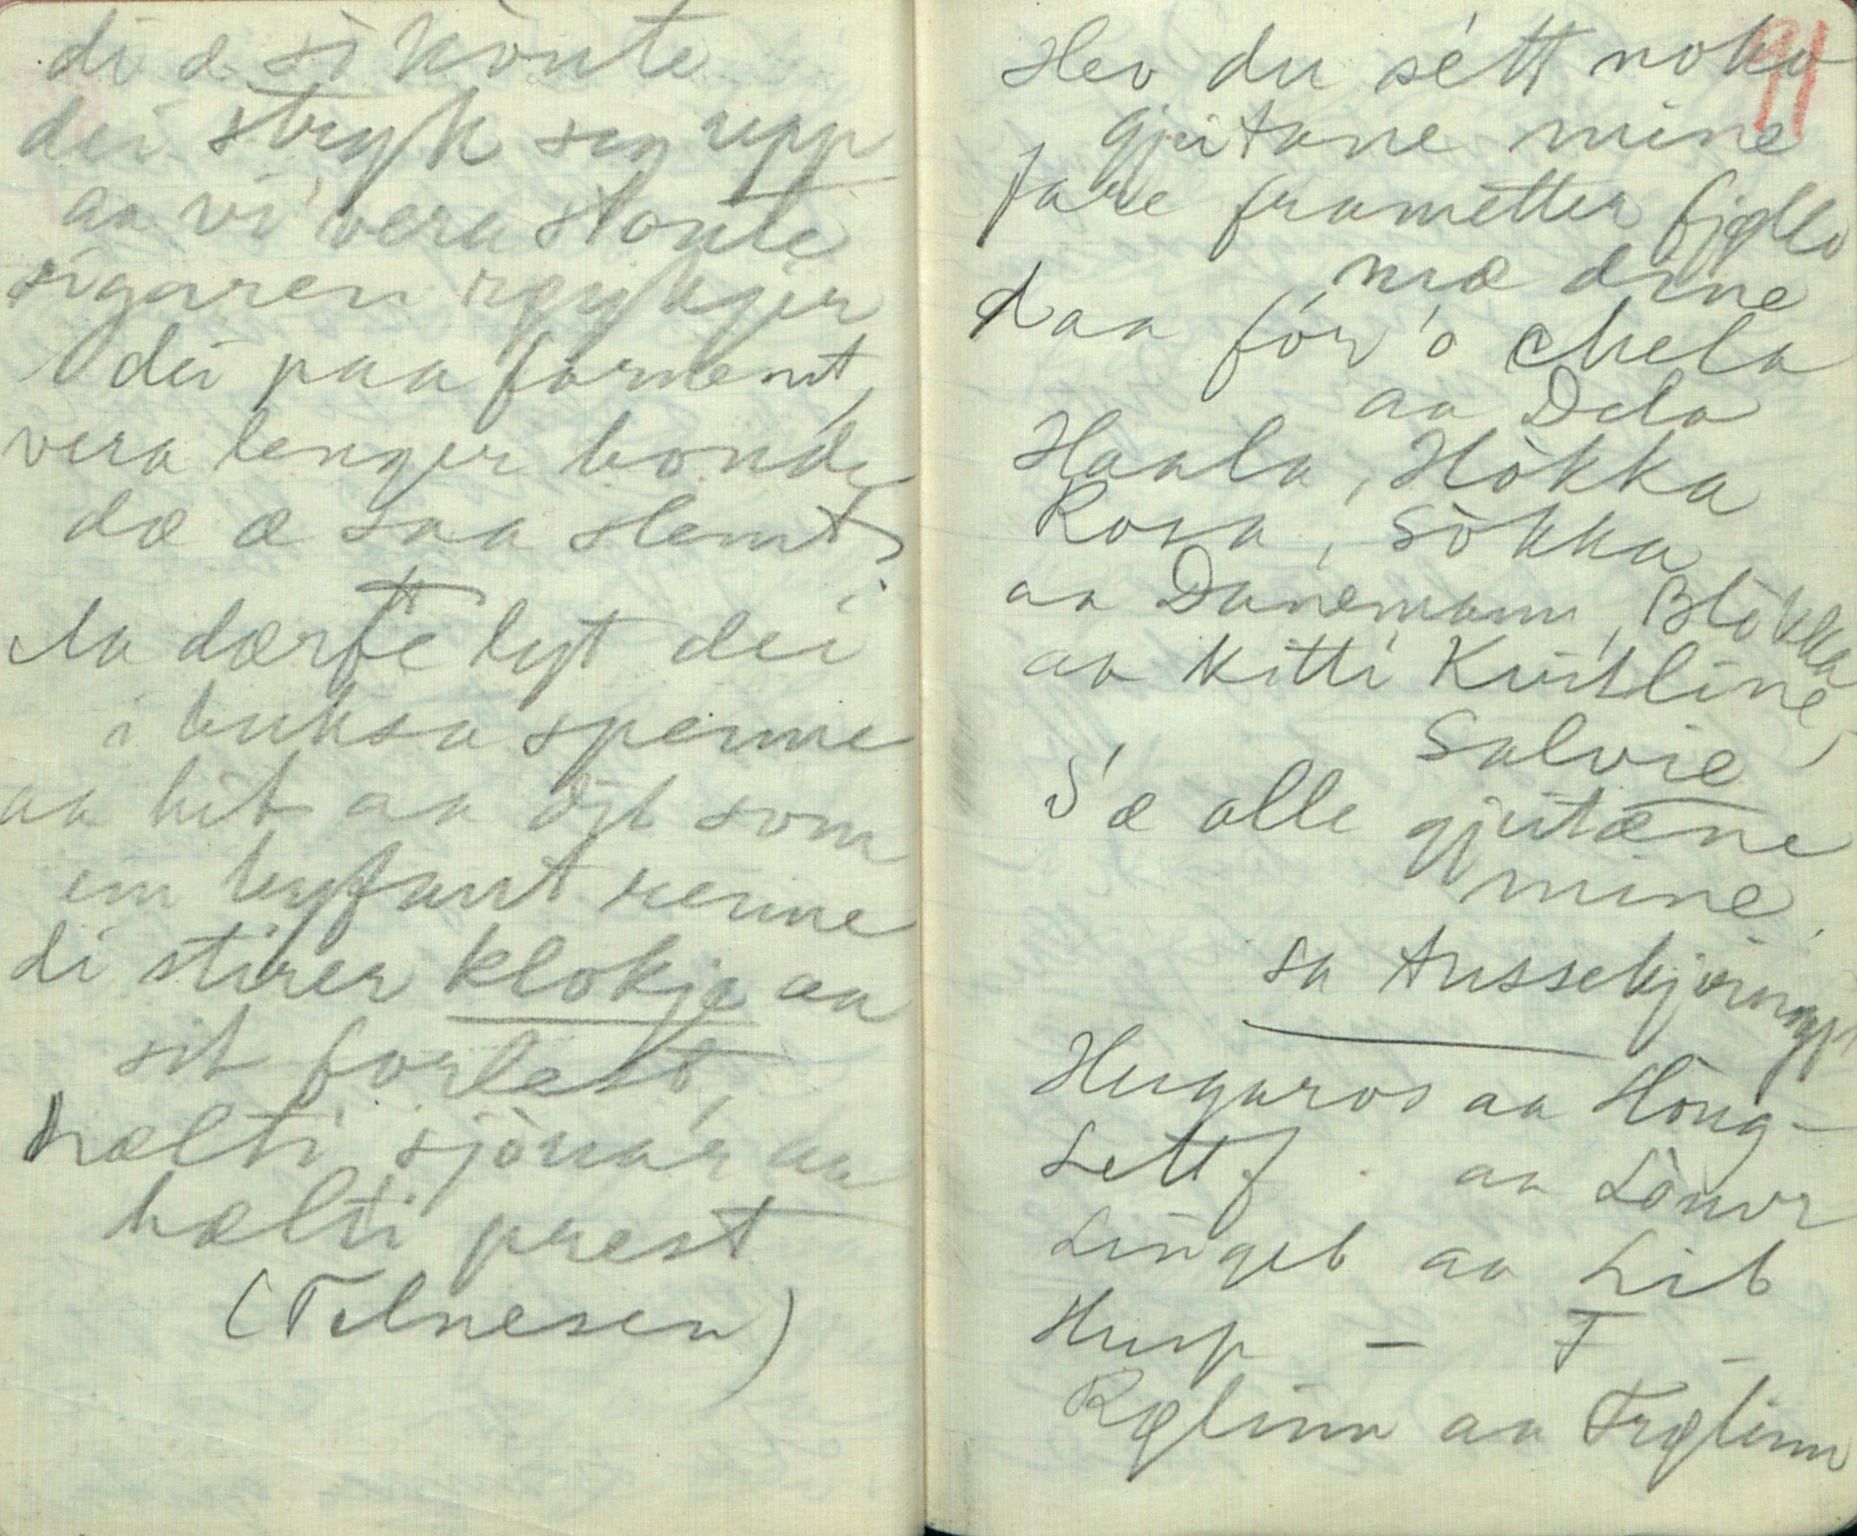 di æ sì kònte
dei stryk seg upp
aa vi' vera stonte
sigaren røykjer
dei paa fornemt,
vera lenger bonde
dæ æ saa slemt,
Aa dærte lyt dei
i buksa spenne
aa hit aa dit som
ein byfant renne
di stirer klokja aa
sit forlest,
hælti sjòvar aa
hælti prest
(Telnesen)
91
Hev du sétt noko
gjeitane mine
fare frametter fjøllo
mæ dine
daa fór 'o Chela
aa Dela
Haala, Hòkka
Rosa, Sòkka
aa Danemann, Blòkka
aa Kitti Kvitline,
Salvie
S'æ alle gjeitæne
mine
sa tussekjeringi
Hugaros aa Houg-
Lettf. aa Lòuvr
Lingeb aa Lib
Husp - T -
Røglinn aa Trøglinn